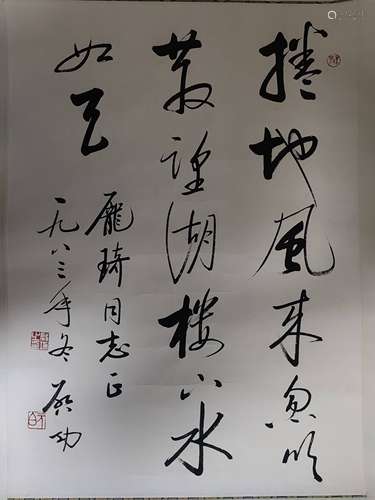 捲地风来忽吹
散望湖楼下水
如天
庞琦同志正
一九八三年冬 启功